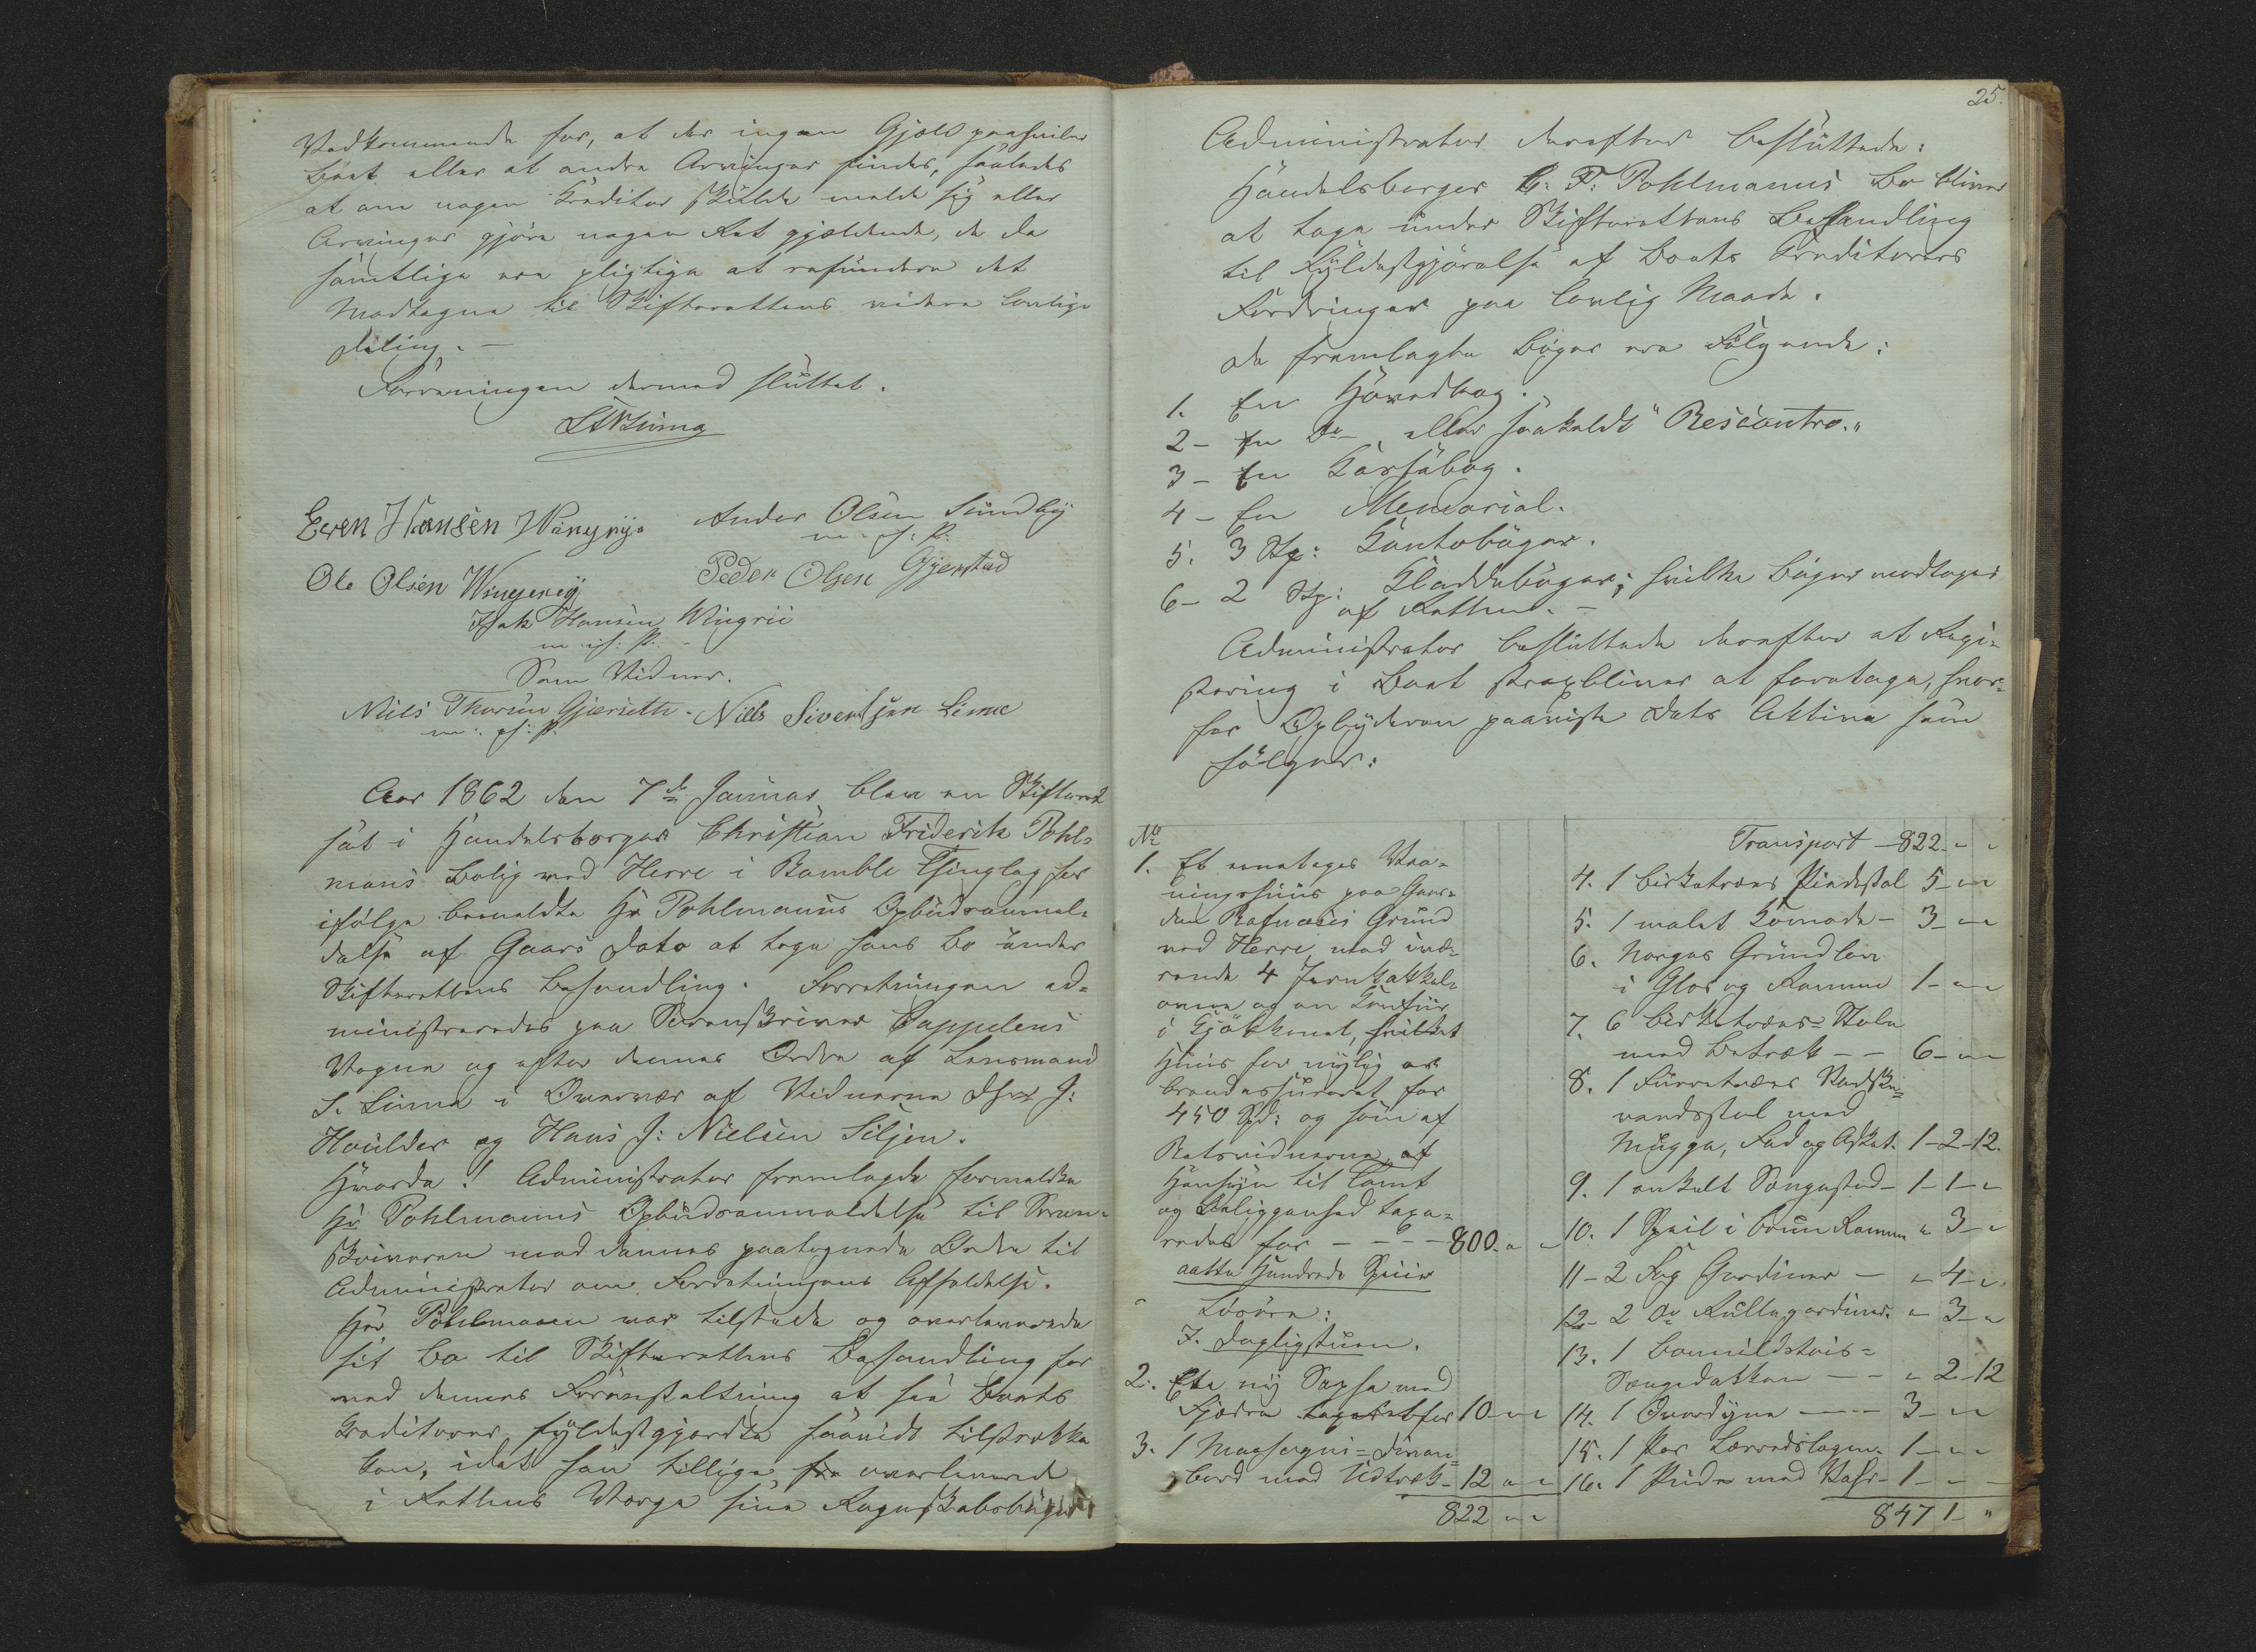 Vedkommende for, at der ingen Gjæld paahviler
Boet eller at andre Arvinger findes, saaledes
at om nogen Creditor skulde melde sig eller
Arvinger gjøre nogen Ret gjældende, de da
samtlige ere pligtige at refundere det
Modtagne til Skifterettens videre lovlige
Deling. —
Forretningen dermed sluttet.
Even Hansen
Ole Olsen
Anders Olsen Sundby
m. f. P.
Peder Olsen Gjerstad
Isak Hansen
m. f. P.
Som Vidner.
Niels
m. f. P.
Niels Sivertsen Linne
Aar 1862 den 7de Januar blev en Skifteret
sat i Handelsborger Christian Friderik Pohl-
manns Bolig ved Herre i Bamble Thinglag for
ifølge bemeldte Hr Pohlmanns Opbudsanmel-
delse af Gaars Dato at tage hans Bo under
Skifterettens Behandling. Forretningen ad-
ministreredes paa Sorenskriver Cappelens
Vegne og efter dennes Ordre af Lensmand
S. Linne i Overvær af Vidnerne J:
Houlder og Hans J: Nielsen Siljen.
Hvorda! Administrator fremlagde formeldte
Hr Pohlmanns Opbudsanmeldelse til Soren-
skriveren med dennes paategnede Ordre til
Administrator om Forretningens Afholdelse.
Hr Pohlmann var tilstede og overleverede
sit Bo til Skifterettens Behandling for
ved dennes Foranstaltning at faa Boets
Creditorer fyldestgjordte saavidt tilstrække
kan, idet han tillige overleverede
i Rettens Værge sine Regnskabsbøger
25.
Administrator derefter besluttede:
Handelsborger C. F. Pohlmanns Bo bliver
at tage under Skifterettens Behandling
til Fyldestgjørelse af Boets Creditorers
Fordringer paa lovlig Maade.
De fremlagte Bøger ere Følgende:
1. En Hovedbog.
2 - En Do, eller saakaldt "Rescontro."
3 - En Cassabog.
4 - En Memorial.
5. 3 Stp: Contobøger.
6 - 2 Stp: Kladdebøger; hvilke Bøger modtages
af Retten. —
Administrator besluttede derefter at Regi-
strering i Boet strax bliver at foretage, hvor-
for Opbyderen paaviste dets Aktiva som
følger:
No
1. Et eenetages Vaa-
ningshuus paa Gaar-
den Rafnæs's Grund
ved Herre med ivæ-
rende 4 Jernkakkel-
ovne og en Comfuir
i Kjøkkenet, hvilket
Huus for nylig er
brandassureret for
450 Spd: og som af
Retsvidnerne, af
Hensyn til Tomt
og Beliggenhed taxe-
redes for - - - 800 " "
aatte Hundrede Spēcier
Løsøre:
I. Dagligstuen.
2. En ny Sopha med
Fjædre taxeret for 10 - " "
3. 1 Mahogni-Divan-
bord med Udtræk - 12 " "
822 " "
Transport - 822 - " "
4. 1 birketræes Pindestol 5 - " "
5. 1 malet Comode - 3 - " "
6. Norges Grundlov
i Glas og Ramme 1 - " "
7. 6 birketræes-Stole
med Betræk - - 6 - " "
8. 1 Furretræes Vadske-
vandsstol med
Mugge, Fad og Asket. 1 - 2 - 12.
9. 1 enkelt Sengested - 1 - 1 - "
10. 1 Speil i bruun Ramme " 3 - "
11 - 2 Fag Gardiner - " 4 - "
12 - 2 Do Rullegardiner. " 3 - "
13. 1 Bomuldstøis-
Sengedækken - - " 2 - 12
14. 1 Overdyne - - 3 - " "
15. 1 Par Lærredslagen. 1 - " "
16. 1 Pude med Vahr - 1 - " -
847 1 - "